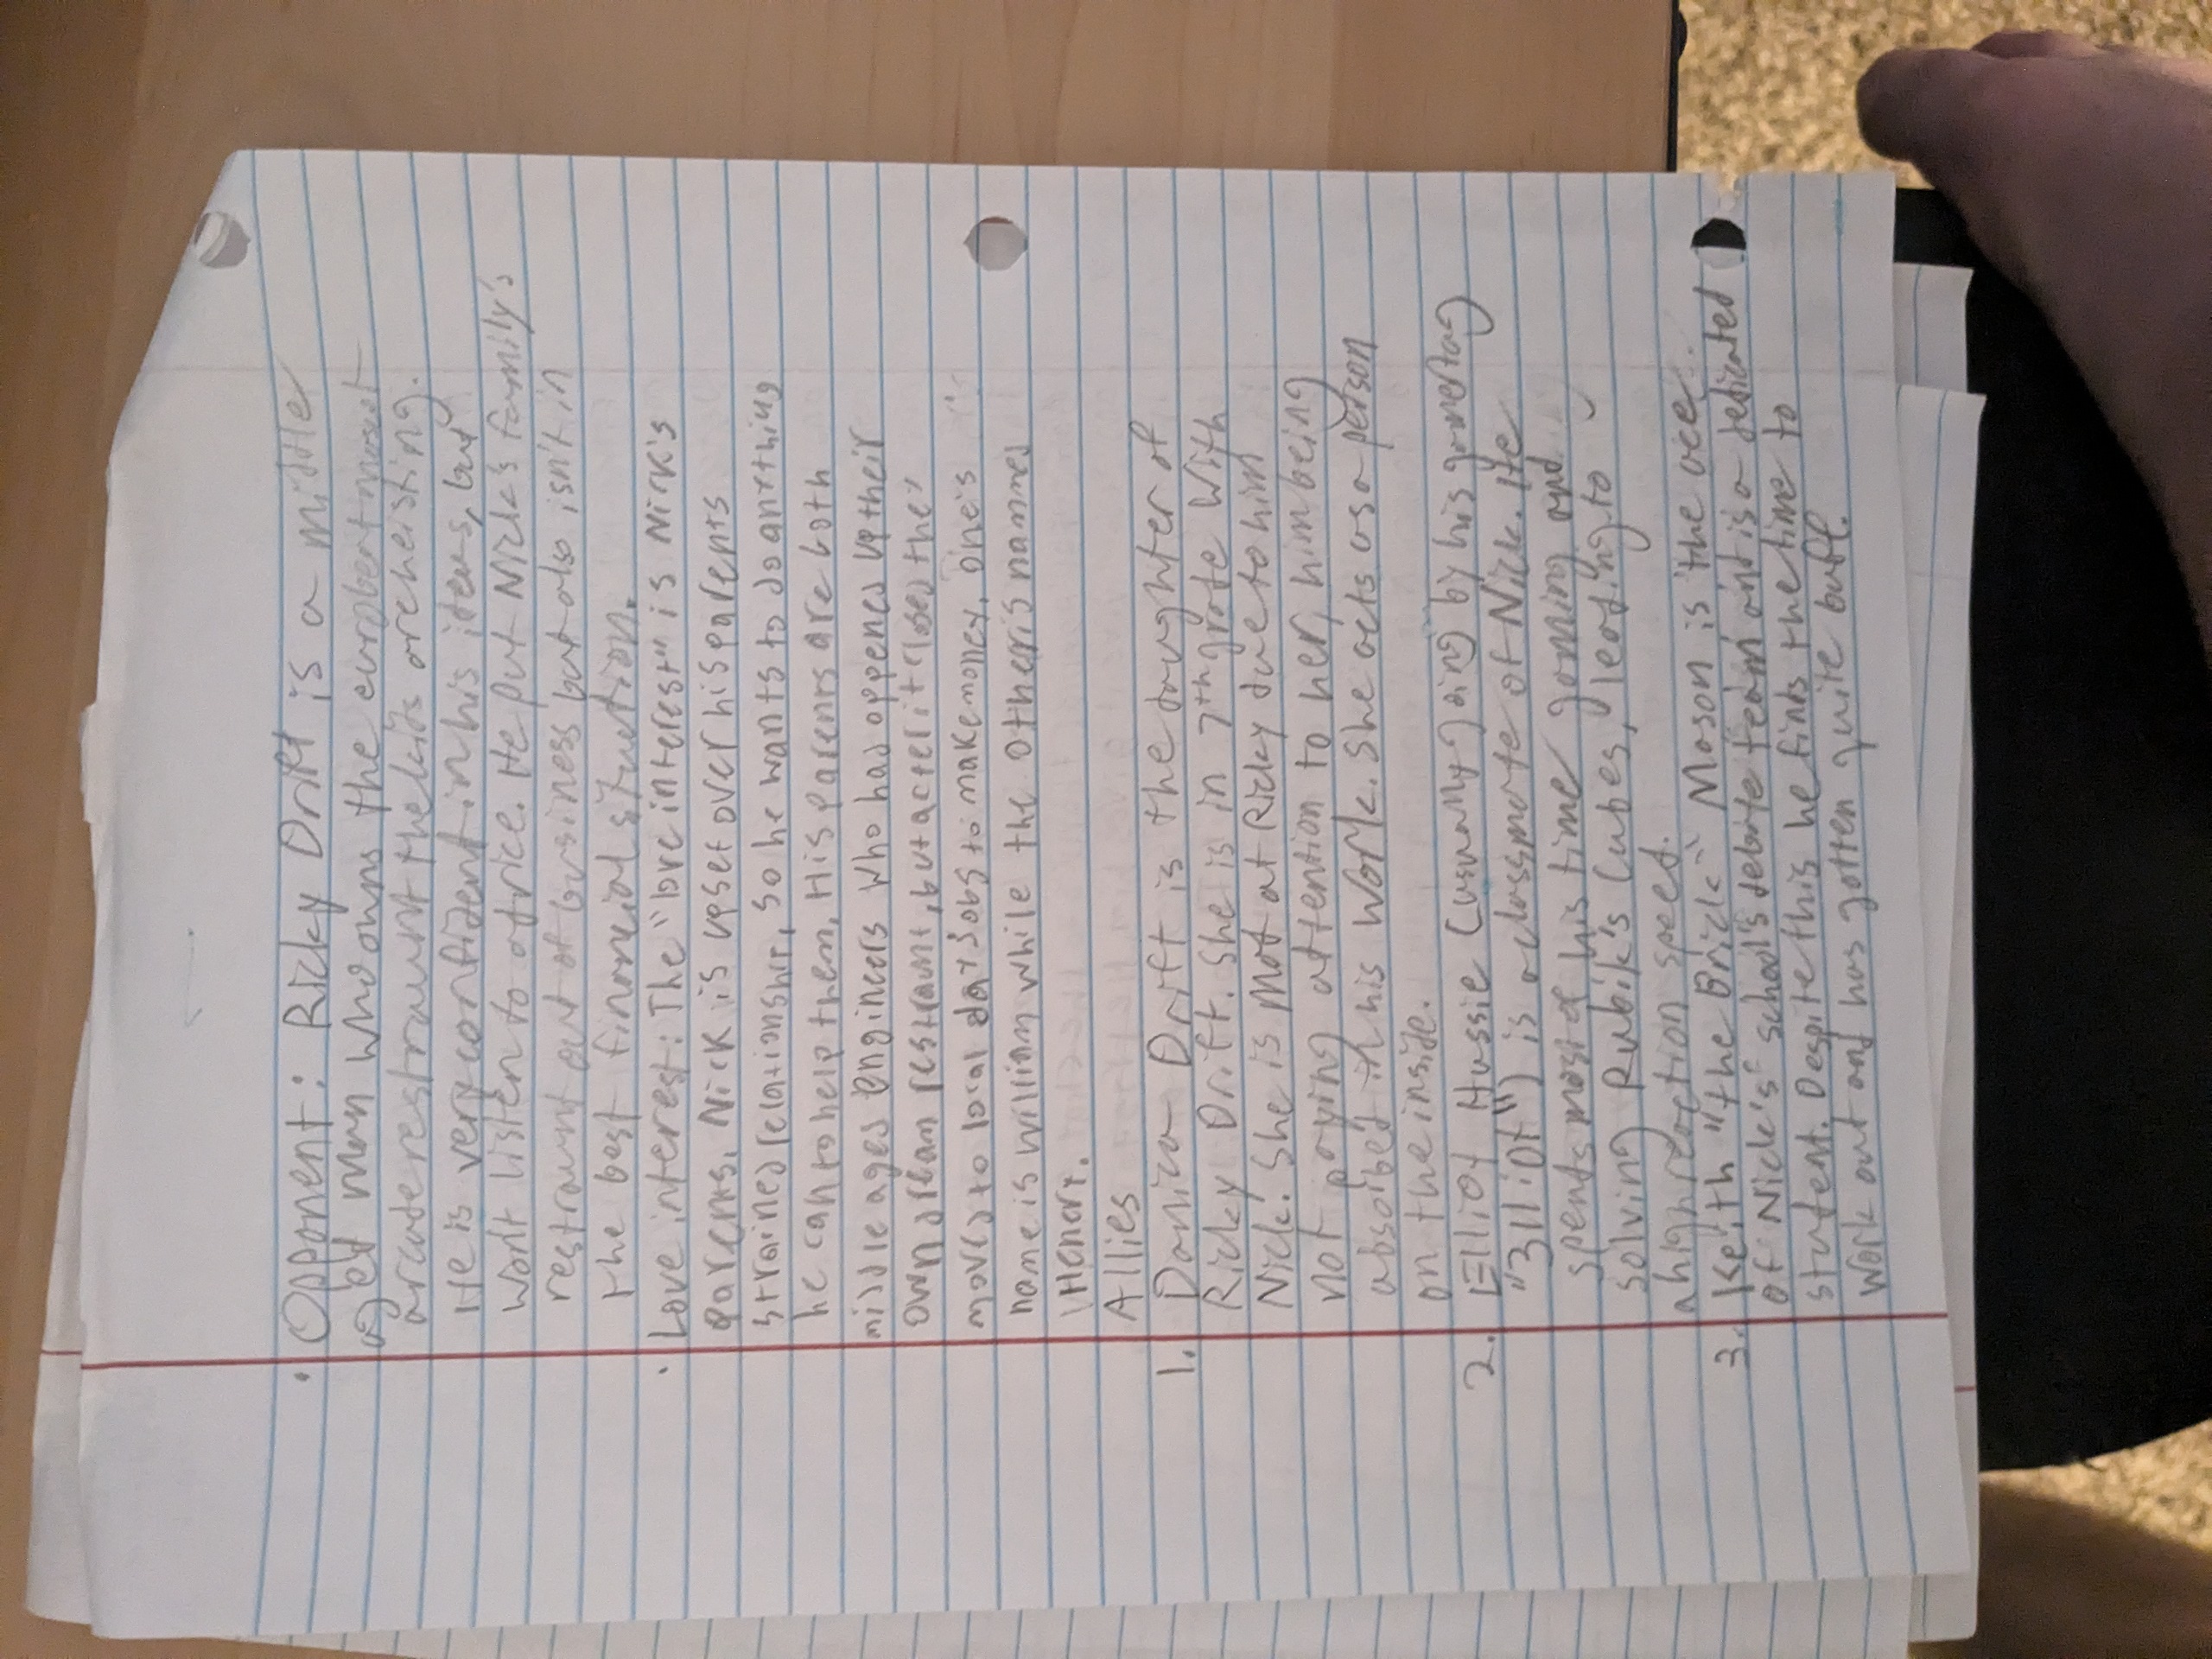 · Opponent: Ricky Drift is a middle
aged man who owns the current most
arcade restraunt the kids are heisting.
He is very confident in his ideas, but
wont listen to advice. He put Nick's family's
restraunt out of business but also isn't in
the best financial situation.
· Love interest: The "love interest" is Nick's
parents. Nick is upset over his parents
strained relationship, so he wants to do anything
he can to help them. His parents are both
middle aged engineers who had opened up their
own dream restraunt, but acter it closed they
moved to local day jobs to make money. One's
name is william while the other is named
Henery.
Allies
1. Danica Drift is the daughter of
Ricky Drift. She is in 7th grade with
Nick. She is mad at Ricky due to him
not paying attention to her, him being
absorbed in his work. She acts as a person
on the inside.
2. Elliot Hussie (usually going by his gamertag
"3lli0t") is a classmate of Nick. He
spents most of his time gaming and
solving Rubik's Cubes, leading to
a high reaction speed.
3. Keith "the Brick" Mason is the ace
of Nick's school's debate team and is a dedicated
student. Despite this he finds the time to
work out and has gotten quite buff.